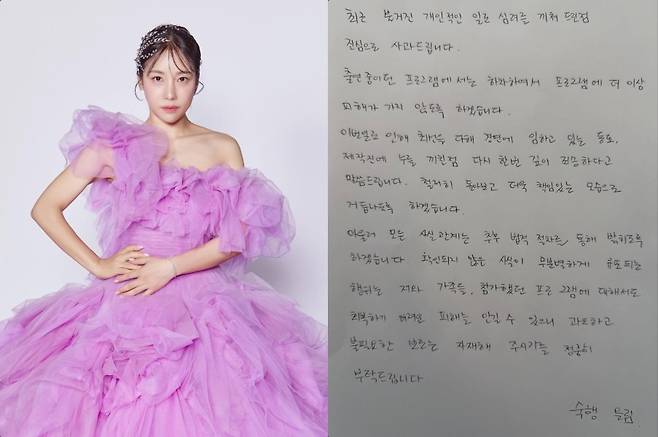 최근 불거진 개인적인 일로 심려를 끼쳐 드린점
진심으로 사과드립니다.
출연중이던 프로그램에서는 하차하여서 프로그램에 더 이상
피해가 가지 않도록 하겠습니다.
이번일로 인해 최선을 다해 경연에 임하고 있는 동료,
제작진에 누를 끼친점 다시 한번 깊이 죄송하다고
말씀드립니다. 철저히 돌아보고 더욱 책임있는 모습으로
거듭나도록 하겠습니다.
아울러 모든 사실 관계는 추후 법적 절차를 통해 밝히도록
하겠습니다. 확인되지 않은 사적이 무분별하게 유포되는
행위는 저와 가족들, 참가했던 프로그램에 대해서도
회복하기 어려운 피해를 안길 수 있으니 과도하고
불필요한 보도는 자제해 주시기를 정중히
부탁드립니다
숙행 드림.